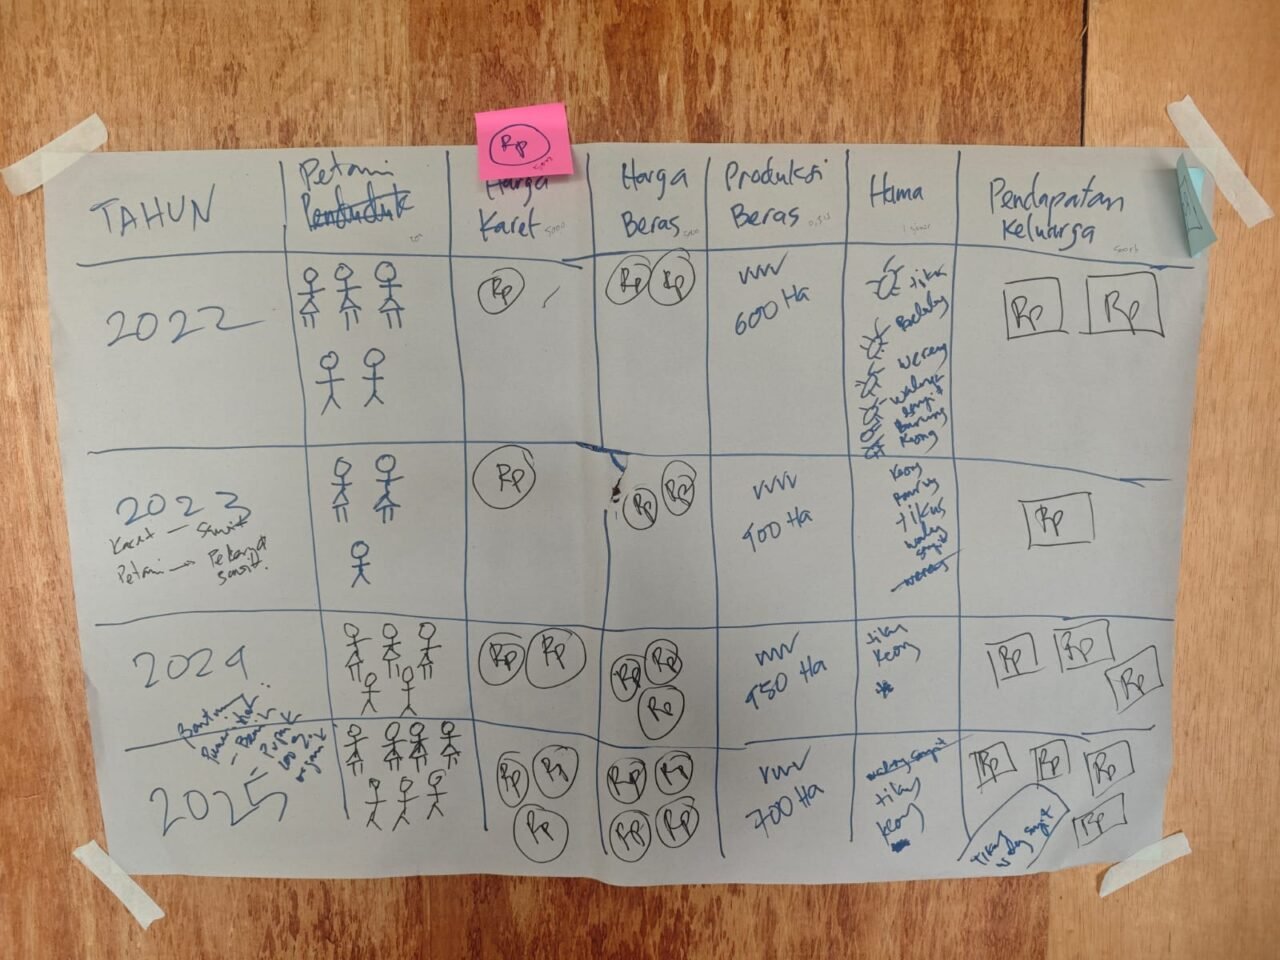 TAHUN
Petani
Penduduk
Rp
Harga
Karet 5000
Harga
Beras
Produksi
Beras
Hama
Pendapatan
Keluarga
2022
Rp
Rp Rp
600 Ha
tikus
Belalang
wereng
walang
sangit
Burung
Keong
Rp Rp
2023
Karet — Sawit
Petani → Pekerja
sawit.
Rp
Rp Rp
400 Ha
Keong
Burung
tikus
walang
sangit
wereng
Rp
2024
Rp Rp
Rp Rp
Rp
450 Ha
tikus
Keong
Rp Rp
Rp
Bantuan
Pemerintah
- Benih
- Pupuk
2025
Rp Rp
Rp
Rp Rp
Rp Rp
700 Ha
walang sangit
tikus
Keong
Rp Rp Rp
Rp
Tikus
walang sangit